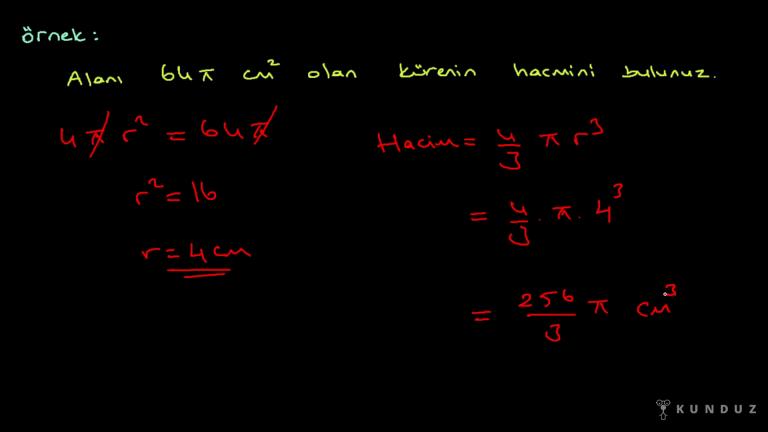 örnek:
Alanı 64π cm² olan kürenin hacmini bulunuz.
4π r² = 64π
r² = 16
r = 4 cm
Hacim = 4/3 π r³
= 4/3 . π . 4³
= 256/3 π cm³
KUNDUZ